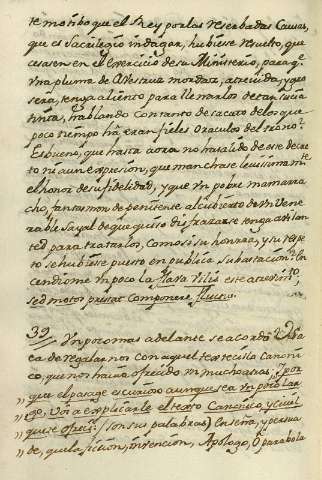 te motibo que el Rey por las reserbadas Causas,
que es Sacrilegio indagar, hubiese resuelto, que
cesasen en el exercicio de su Ministerio, para q.e
Vna pluma de Abestruz mordaz, atrevida, y gro
sera, tenga aliento para llenarlos de tan sucia
tinta, hablando con tanto desacato de los que
poco tiempo há, eran fieles Oraculos del trono.
Es bueno, que hasta aora no ha salido de este decre
to ni aun expresion, que manchase levissimam.te
el honor de su fidelidad, y que Vn pobre mamarra
cho, fantasmon de penitente al cubierto de Vn Vene
rable Sayal de que quiso disfrazarse tenga avilan
tez para tratarlos, como si su honrra, y su respe
to se hubiese puesto en publica subastacion? En
cendiome Vn poco la Clara Vilis este atrevim.to,
sed motos præstat componere fluctus.
39 Vn poco mas adelante se acordó V. A
ca de regalarnos con aquel texto civil, ó Canoni
co, que nos havia ofrecido muchos atras. Y por
" que el parage es curioso aunque sea Vn poco lar
" go, Voi a explicarle el texto Canonico, y Civil
" que se ofreció: (son sus palabras) Enseña, y persua
" de, que la ficcion, invencion, Apologo, ó parabola